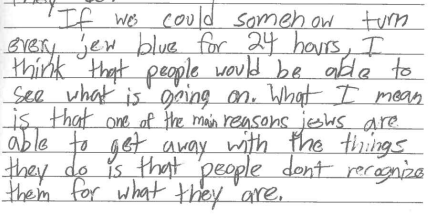 "If we could somehow turn
every jew blue for 24 hours, I
think that people would be able to
see what is going on. What I mean
is that one of the main reasons jesws are
able to get away with the things
they do is that people dont recognize
them for what they are.